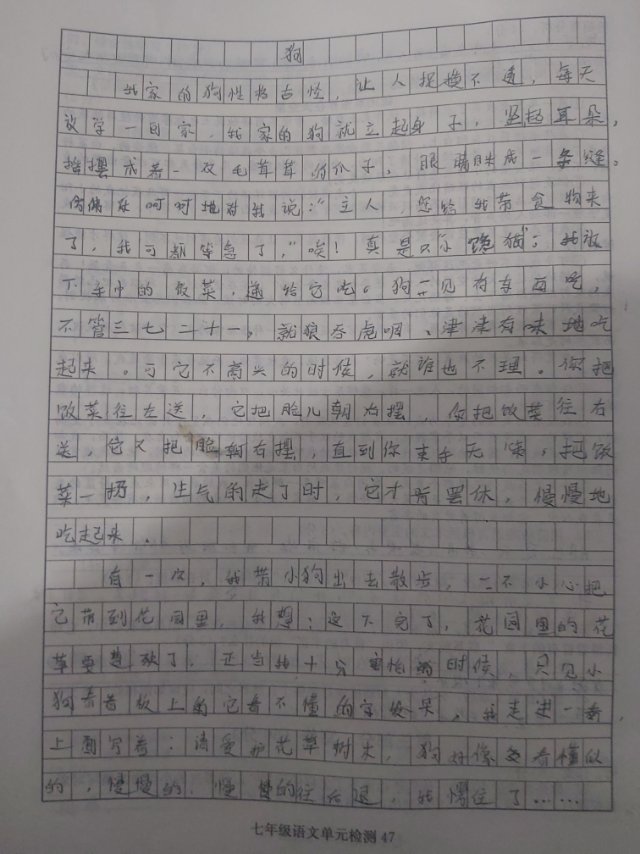 狗
我家的狗性格古怪，让人捉摸不透，每天
放学一回家，我家的狗就立起身子，竖起耳朵，
摆着一双毛茸茸的爪子，眼睛眯成一条缝。
呵呵地对我说：“主人，您给我带食物来
了，我可等急了。”唉！真是只“小馋猫”；我放
下手中的饭菜，递给它吃。狗一见有东西吃，
不管三七二十一，就狼吞虎咽、津津有味地吃
起来。可它不高兴的时候，就谁也不理。你把
饭菜往左送，它把脸儿朝右摆，你把饭菜往右
送，它又把脸朝右摆，直到你束手无策，把饭
菜一扔，生气的走了时，它才肯罢休，慢慢地
吃起来．
有一次，我带小狗出去散步，一不小心把
它带到花园里，我想：这下完了，花园里的花
草要惨了．正当我十分害怕的时候，只见小
狗看着板上的它看不懂的字发呆，我走进一看
上面写着：请爱护花草树木，狗好像看懂似
的，慢慢的，慢慢的往后退，我愣住了……
七年级语文单元检测 47